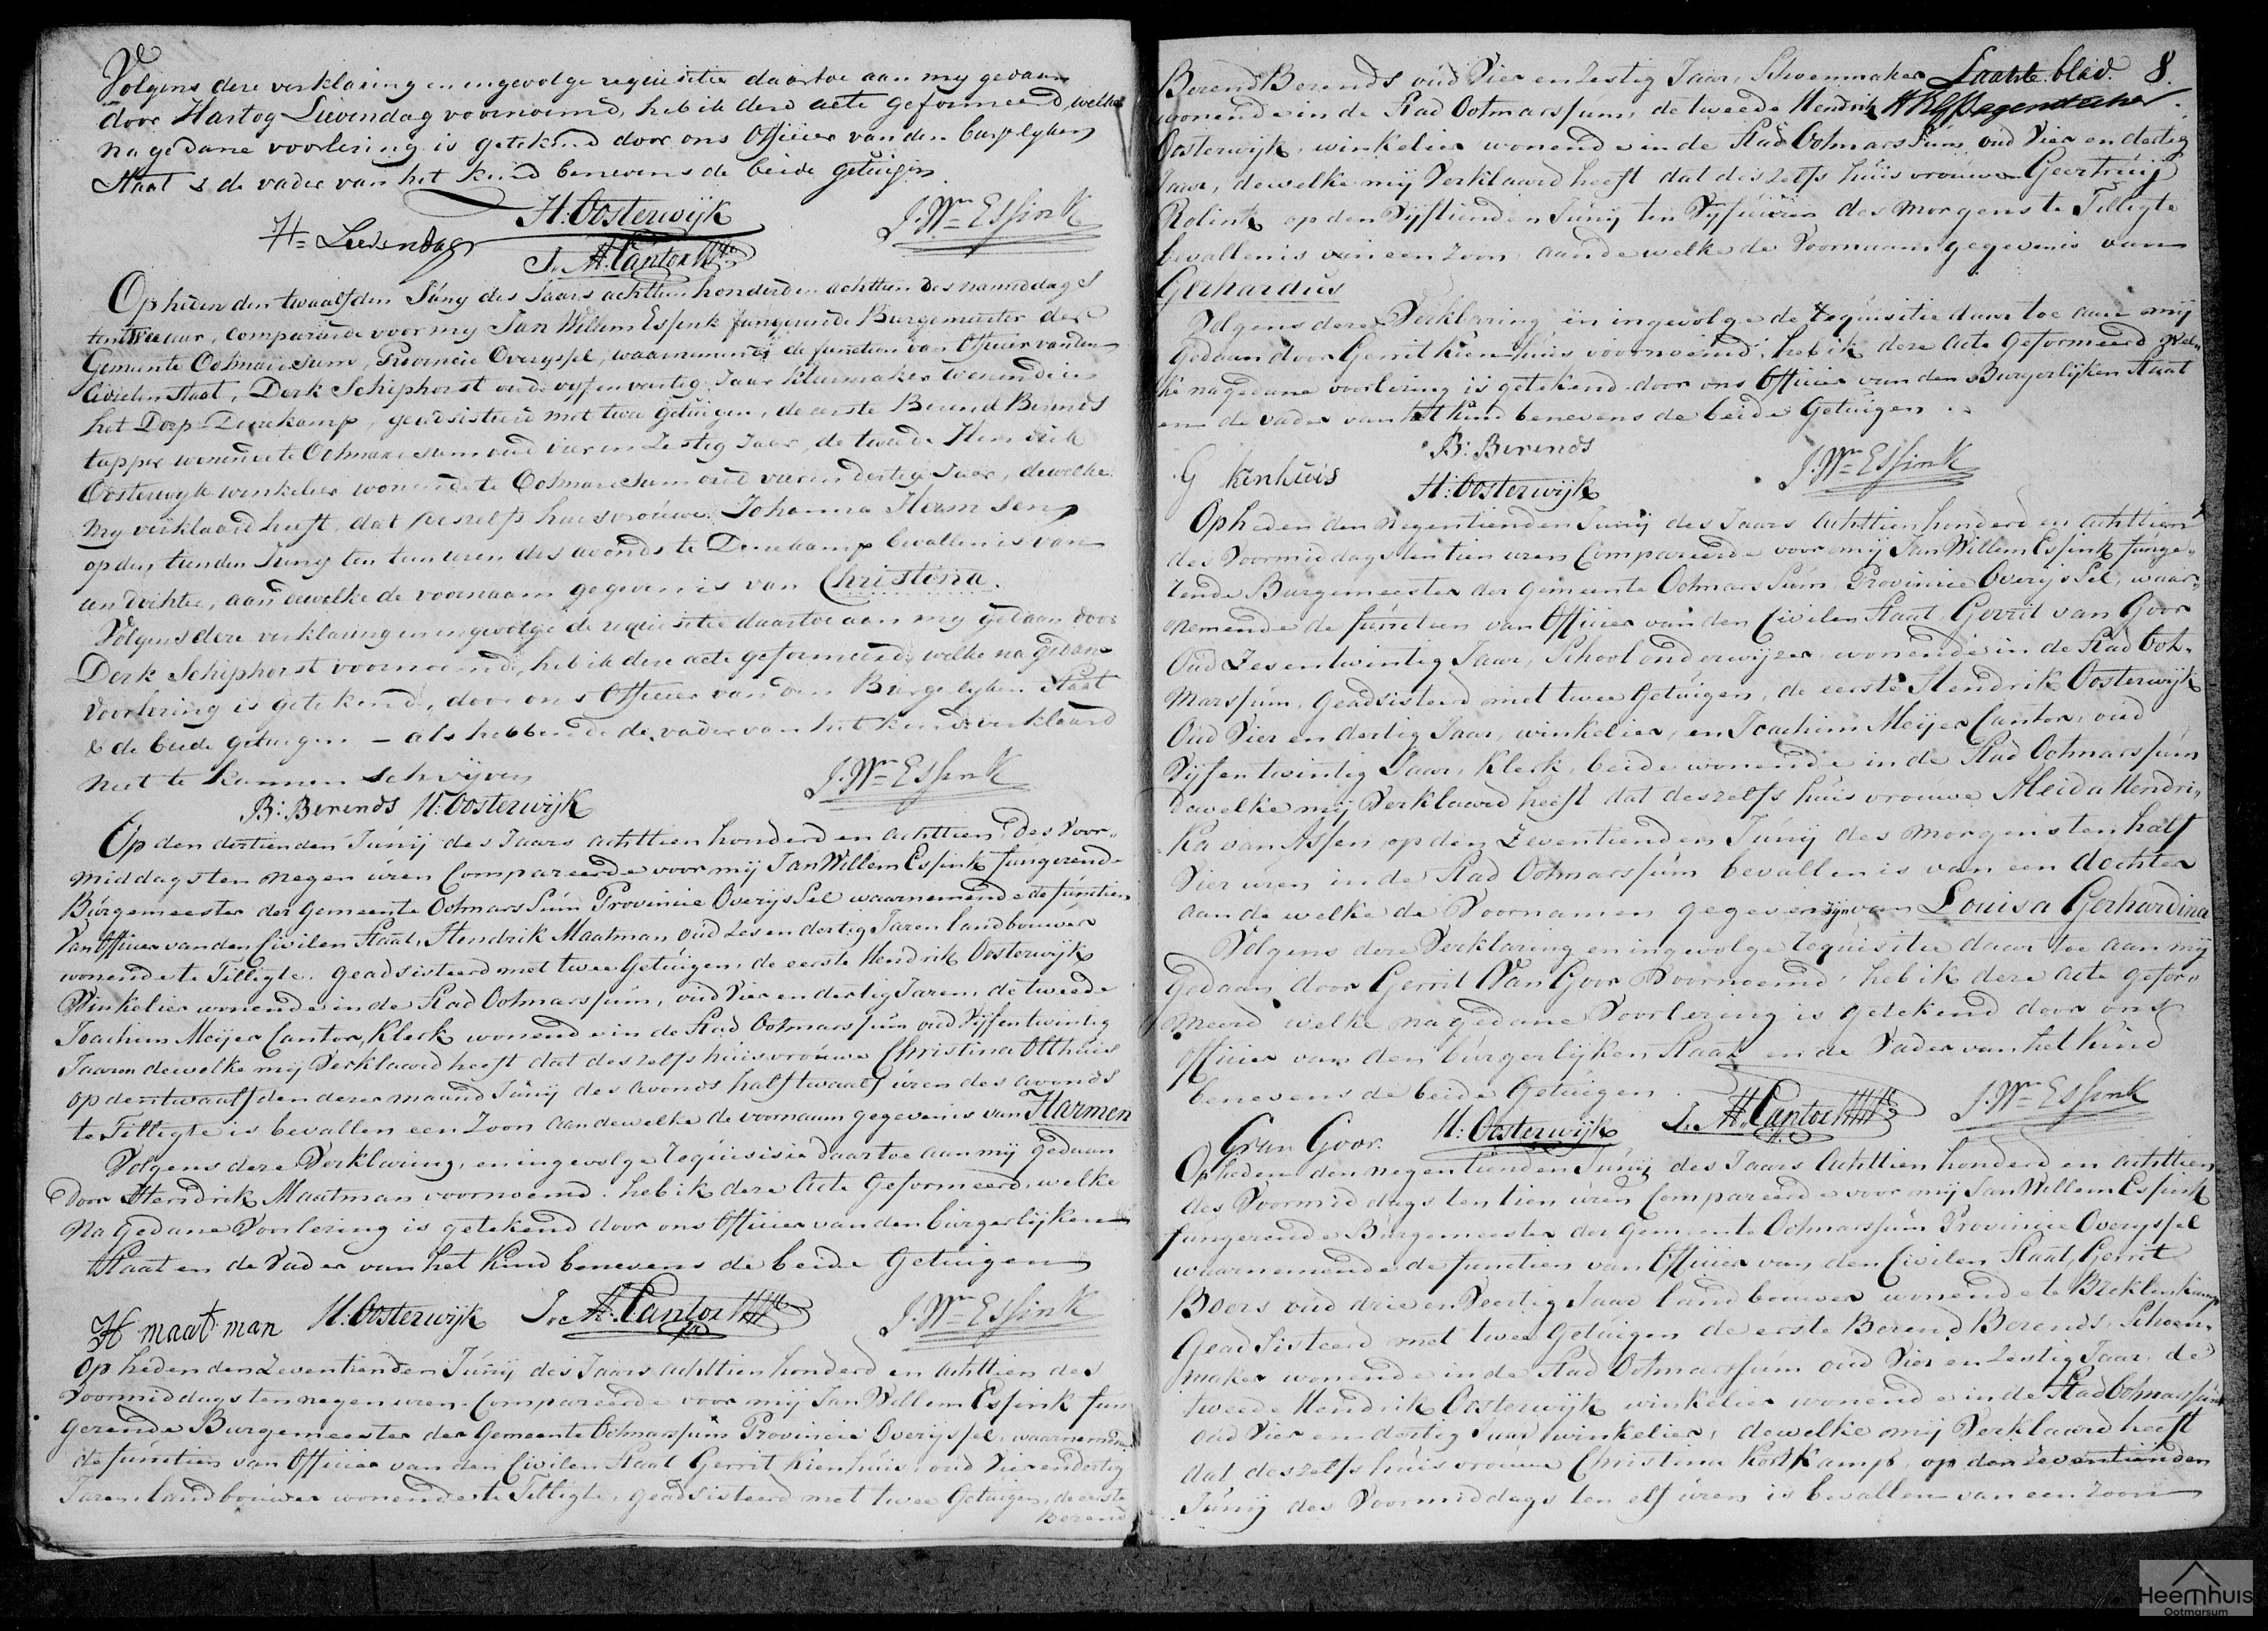 Volgens deze verklaring en ingevolge requisitie daartoe aan my gedaan
door Hartog Lievendag voornoemd, heb ik deze acte geformeerd, welke
na gedane voorlezing is getekend door ons Officier van den burgerlyken
Staat & de vader van het kind benevens de beide getuigen
H: Oosterwijk J. Wm Essink
H= Leevendag
J. M. Cantor
Op heden den twaalfden Juny des Jaars achttienhonderd en achttien des namiddags
ten twee uur, compareerde voor my Jan Willem Essink fungerende Burgemeester der
Gemeente Ootmarssum, Provincie Overyssel, waarnemende de functien van Officier van den
Civielen Staat, Derk Schiphorst oud vyf en veertig Jaar kleermaker wonende in
het Dorp Denekamp, geadsisteerd met twee getuigen, de eerste Berend Berends
tapper wonende te Ootmarssum oud vier en zestig Jaar, de tweede Hendrik
Oosterwyk winkelier wonende te Ootmarssum oud vier en dertig Jaar, dewelke
my verklaard heeft, dat deszelfs huisvrouwe Johanna Hermsen
op den tienden Juny ten tien uren des avonds te Denekamp bevallen is van
een dochter, aan dewelke de voornaam gegeven is van Christina.
Volgens deze verklaring en ingevolge de requisitie daartoe aan my gedaan door
Derk Schiphorst voornoemd, heb ik deze acte geformeerd, welke na gedane
voorlezing is getekend, door ons Officier van den Burgerlyken Staat
& de beide getuigen – als hebbende de vader van het kind verklaard
niet te kunnen schryven
J. Wm Essink
B: Berends H: Oosterwijk
Op den dertienden Junij des Jaars achttien honderd en achttien, des Voor-
middags ten negen uren Compareerde voor mij Jan Willem Essink fungerende
Burgemeester der Gemeente Ootmarssum Provincie Overijssel waarnemende de functien
Van Officier van den Civilen Staat, Hendrik Maatman oud Zes en dertig Jaren landbouwer
wonende te Tilligte. geadsisteerd met twee Getuigen, de eerste Hendrik Oosterwijk
Winkelier wonende in de Stad Ootmarssum, oud Vier en dertig Jaren, de tweede
Joachim Meijer Cantor, Klerk wonende in de Stad Ootmarssum oud Vijf en twintig
Jaaren dewelke mij Verklaard heeft dat deszelfs huisvrouwe Christina Olthuis
op den twaalfden dezer maand Junij des avonds half twaalf uren des avonds
te Tilligte is bevallen een Zoon aan dewelke de voornaam gegeven is van Harmen
Volgens deze Verklaring, en ingevolge requisisie daartoe aan mij gedaan
Door Hendrik Maatman voornoemd. heb ik deze Acte Geformeerd, welke
Na Gedane Voorlezing is getekend door ons Officier van den burgerlijken
Staat en de Vader van het Kind benevens de beide Getuigen
H maatman H: Oosterwijk J. M. Cantor J. Wm Essink
Op heden den Zeventienden Junij des Jaars achttien honderd en achttien des
Voormiddags ten negen uren Compareerde voor mij Jan Willem Essink fun
gerende Burgemeester der Gemeente Ootmarssum Provincie Overijssel, waarnemende
de functien van Officier van den Civilen Staat Gerrit Kienhuis, oud Vier en dertig
Jaren landbouwer wonende te Tilligte, geadsisteerd met twee Getuigen, de eerste
Berend
Berend Berends oud Vier en Zestig Jaar, Schoenmaker Laatste blad. 8.
wonende in de Stad Ootmarssum, de tweede Hendrik
Oosterwijk, winkelier wonende in de Stad Ootmarssum oud Vier en dertig
Jaar, dewelke mij Verklaard heeft dat deszelfs huisvrouwe Geertruij
Rolink op den Vijftienden Junij ten Vijf uuren des morgens te Tilligte
bevallen is van een Zoon aan dewelke de Voornaam gegeven is van
Gerhardus
Volgens deze Verklaring en ingevolge de requisitie daar toe aan mij
Gedaan door Gerrit Kienhuis voornoemd, heb ik deze acte Geformeerd Wel„
ke na gedane voorlezing is getekend door ons Officier van den Burgerlijken Staat
en de vader van het kind benevens de beide Getuigen.
B: Berends
G Kinhuis H: Oosterwijk J. Wm Essink
Op heden den Negentienden Junij des Jaars Achttien honderd en achttien
des Voormiddags ten tien uren Compareerde voor mij Jan Willem Essink funge„
rende Burgemeester der Gemeente Ootmarssum, Provincie Overijssel, waar„
nemende de functien van Officier van den Civilen Staat, Gerrit van Goor
Oud Zes en twintig Jaar, School onderwijzer wonende in de Stad Oot„
marssum, Geadsisteerd met twee Getuigen, de eerste Hendrik Oosterwijk
Oud Vier en dertig Jaar, winkelier, en Joachim Meijer Cantor, oud
Vijf en twintig Jaar, Klerk, beide wonende in de Stad Ootmarssum
dewelke mij Verklaard heeft dat deszelfs huisvrouwe Aleida Hendri„
ka van Assen, op den Zeventienden Junij des morgens ten half
Vier uren in de Stad Ootmarssum bevallen is van een dochter
aan de welke de Voornamen gegeven zijn van Louisa Gerhardina
Volgens deze Verklaring en ingevolge requisitie daar toe aan mij
Gedaan door Gerrit Van Goor Voornoemd, heb ik deze acte gefor„
meerd welke na gedane Voorlezing is getekend door ons
officier van den burgerlijken Staat en de Vader van het Kind
benevens de beide Getuigen.
G van Goor. H: Oosterwijk J. M. Cantor J. Wm Essink
Op heden den negentienden Junij des Jaars Achttien honderd en achttien
des Voormiddags ten tien uren Compareerde voor mij Jan Willem Essink
fungerende Burgemeester der Gemeente Ootmarssum Provincie Overyssel
waarnemende de functien van Officier van den Civilen Staat, Gerrit
Boers oud drie en Veertig Jaar landbouwer wonende te Breklenkamp
Geadsisteerd met twee Getuigen de eerste Berend Berends, Schoen„
maker wonende in de Stad Ootmarssum oud Vier en Zestig Jaar, de
tweede Hendrik Oosterwijk winkelier wonende in de Stad Ootmarssum
oud Vier en dertig Jaar winkelier, dewelke mij Verklaard heeft
dat deszelfs huisvrouwe Christina Kortkamp, op den Zeventienden
Junij des Voormiddags ten elf uren is bevallen van een Zoon
Heemhuis
Ootmarsum